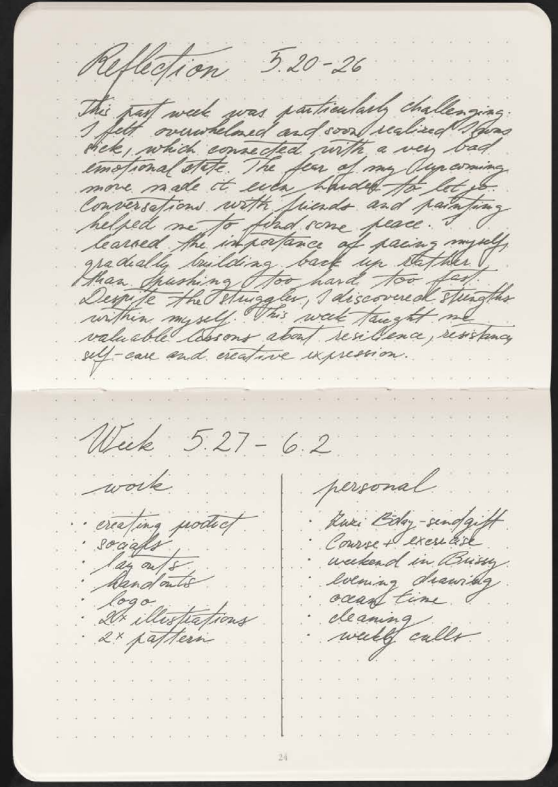 Reflection 5.20-26
This past week was particularly challenging.
I felt overwhelmed and soon realized I was
sick, which connected with a very bad
emotional state. The fear of my upcoming
move made it even harder to let go.
Conversations with friends and painting
helped me to find some peace. I
learned the importance of pacing myself,
gradually building back up rather
than pushing too hard too fast.
Despite the struggles, I discovered strengths
within myself. This week taught me
valuable lessons about resilience, resistance,
self-care and creative expression.
Week 5.27-6.2
work
· creating product
· socials
· layouts
· handouts
· logo
· 2x illustrations
· 2x pattern
personal
· Bday-send gift
· Course + exercise
· weekend in
· evening drawing
· ocean time
· cleaning
· weekly calls
24